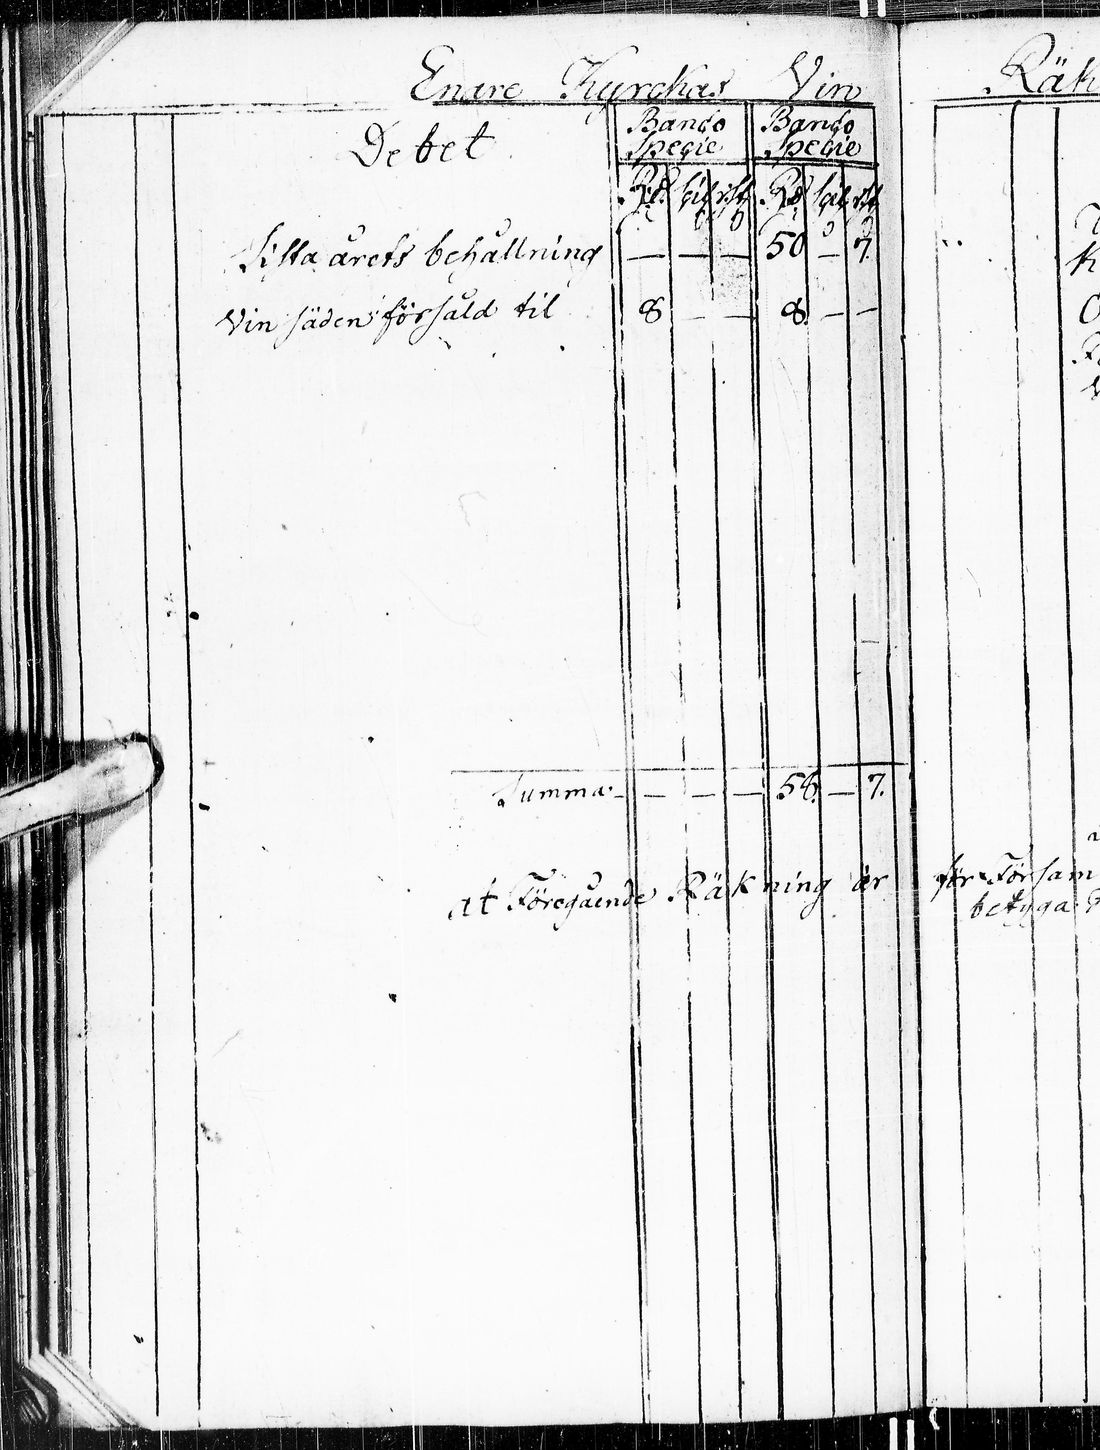 Enare Kyrckas Vin
Debet
Banco Specie
Banco Specie
Rd. sk. rst. Rd. sk. rst.
Sista årets behållning — — — 50 — 7.
Vin säden försåld til 8 — — 8. — —
Summa. — — — 58. — 7.
at Föregående Räkning är
Räk
för Försam
betyga